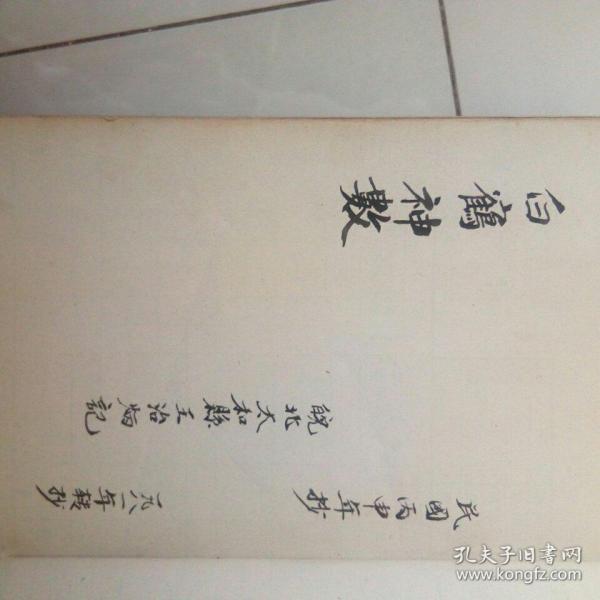 白鶴神數
皖北太和縣王治炳記
民國丙申年抄
一九八一年轉抄
孔夫子旧书网
www.kongfz.com